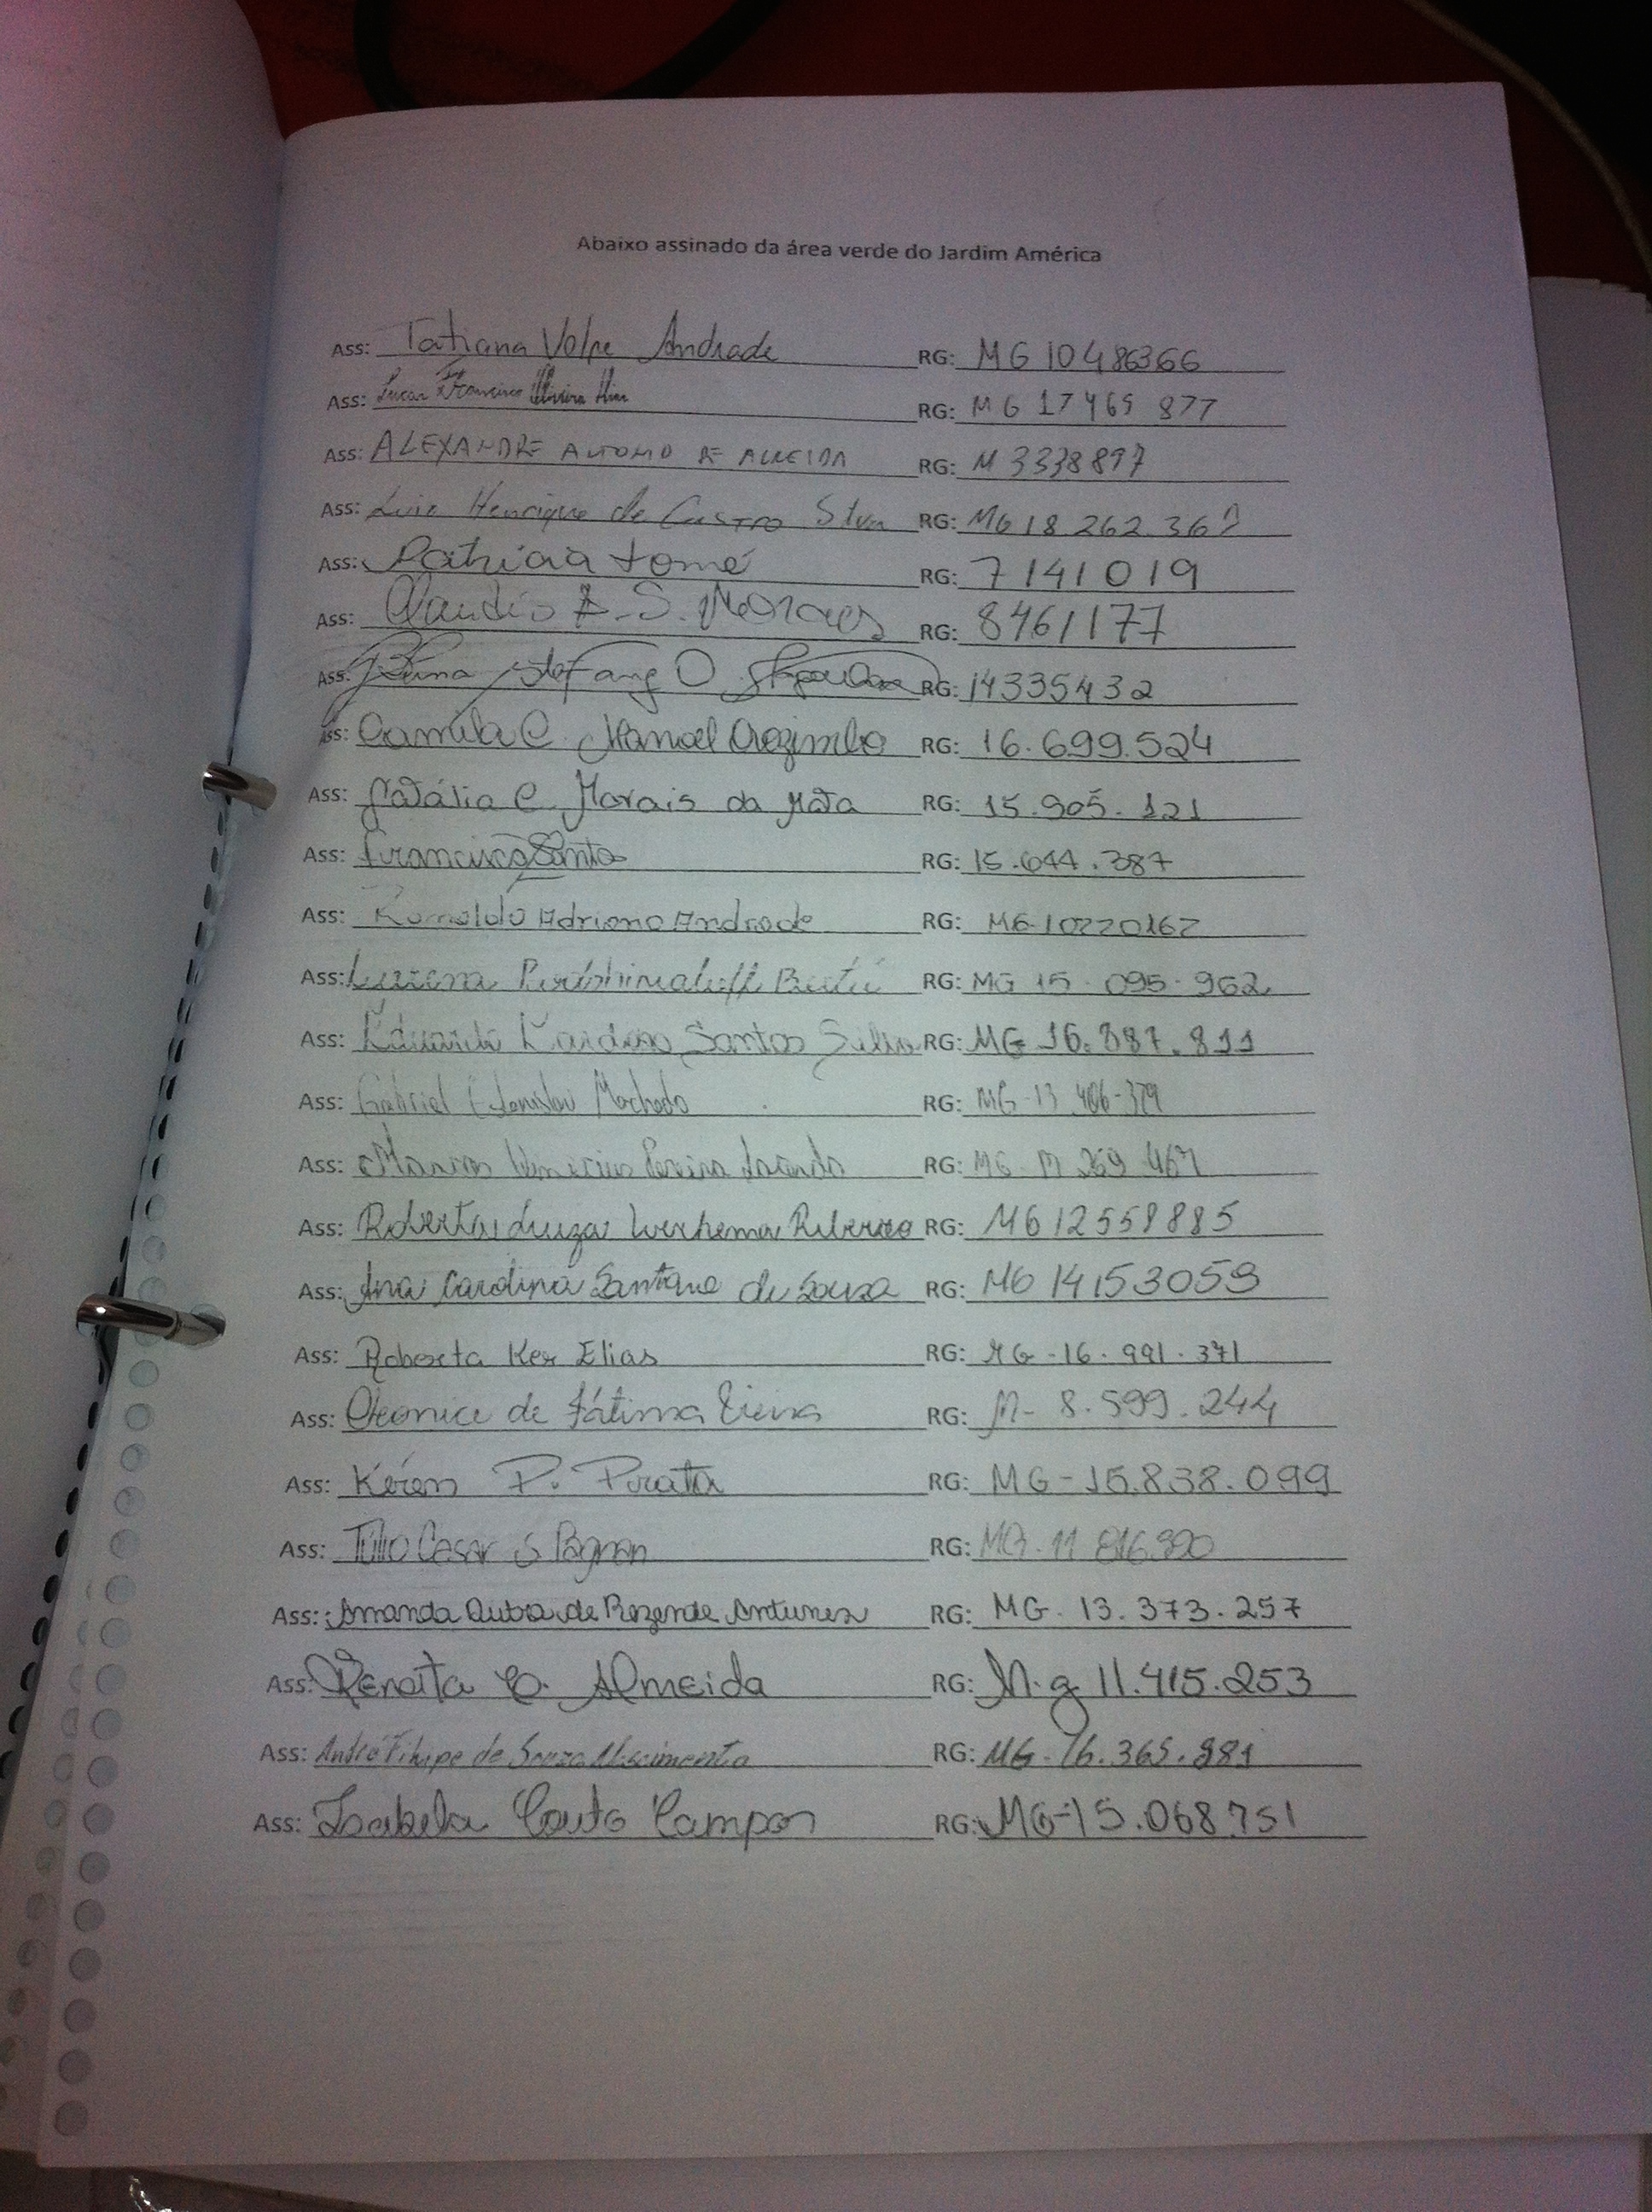 Abaixo assinado da área verde do Jardim América
Ass: Tatiana Volpe Andrade RG: MG 10486366
Ass: Lucas Francisco Oliveira RG: MG 17469 877
Ass: ALEXANDRE ANTONIO DE ALMEIDA RG: M 3338897
Ass: Luiz Henrique de Castro Silva RG: MG 18 262.367
Ass: Patricia Tomé RG: 7141019
Ass: Claudio A. S. Moraes RG: 8461177
Ass: Stefany O RG: 14335432
Ass: Camila C. Manoel Orozimbo RG: 16.699.524
Ass: Natália C. Morais da Mata RG: 15.905.121
Ass: RG: 15.644.387
Ass: Romaldo Adriano Andrade RG: MG-10220162
Ass: Luzena RG: MG 15.095.962
Ass: Eduardo Santos Silva RG: MG 16.887.811
Ass: Gabriel Estanislau Machado RG: MG-13
Ass: Marcos Vinicius Pereira RG: MG
Ass: Roberta Luiza Ribeiro RG: MG 12558885
Ass: Ana Carolina Santana de Souza RG: MG 14153059
Ass: Roberta Ker Elias RG: MG-16.991.371
Ass: Cleonice de Fátima Vieira RG: M- 8.599.244
Ass: Kéren P. Prata RG: MG-15.838.099
Ass: Túlio Cesar S RG: MG-11
Ass: Amanda Dutra de Rezende Antunes RG: MG. 13.373.257
Ass: Renata C. Almeida RG: M.g 11.415.253
Ass: André Filipe de Souza Nascimento RG: MG-16.365.981
Ass: Isabela Couto Campos RG: MG-15.068.751